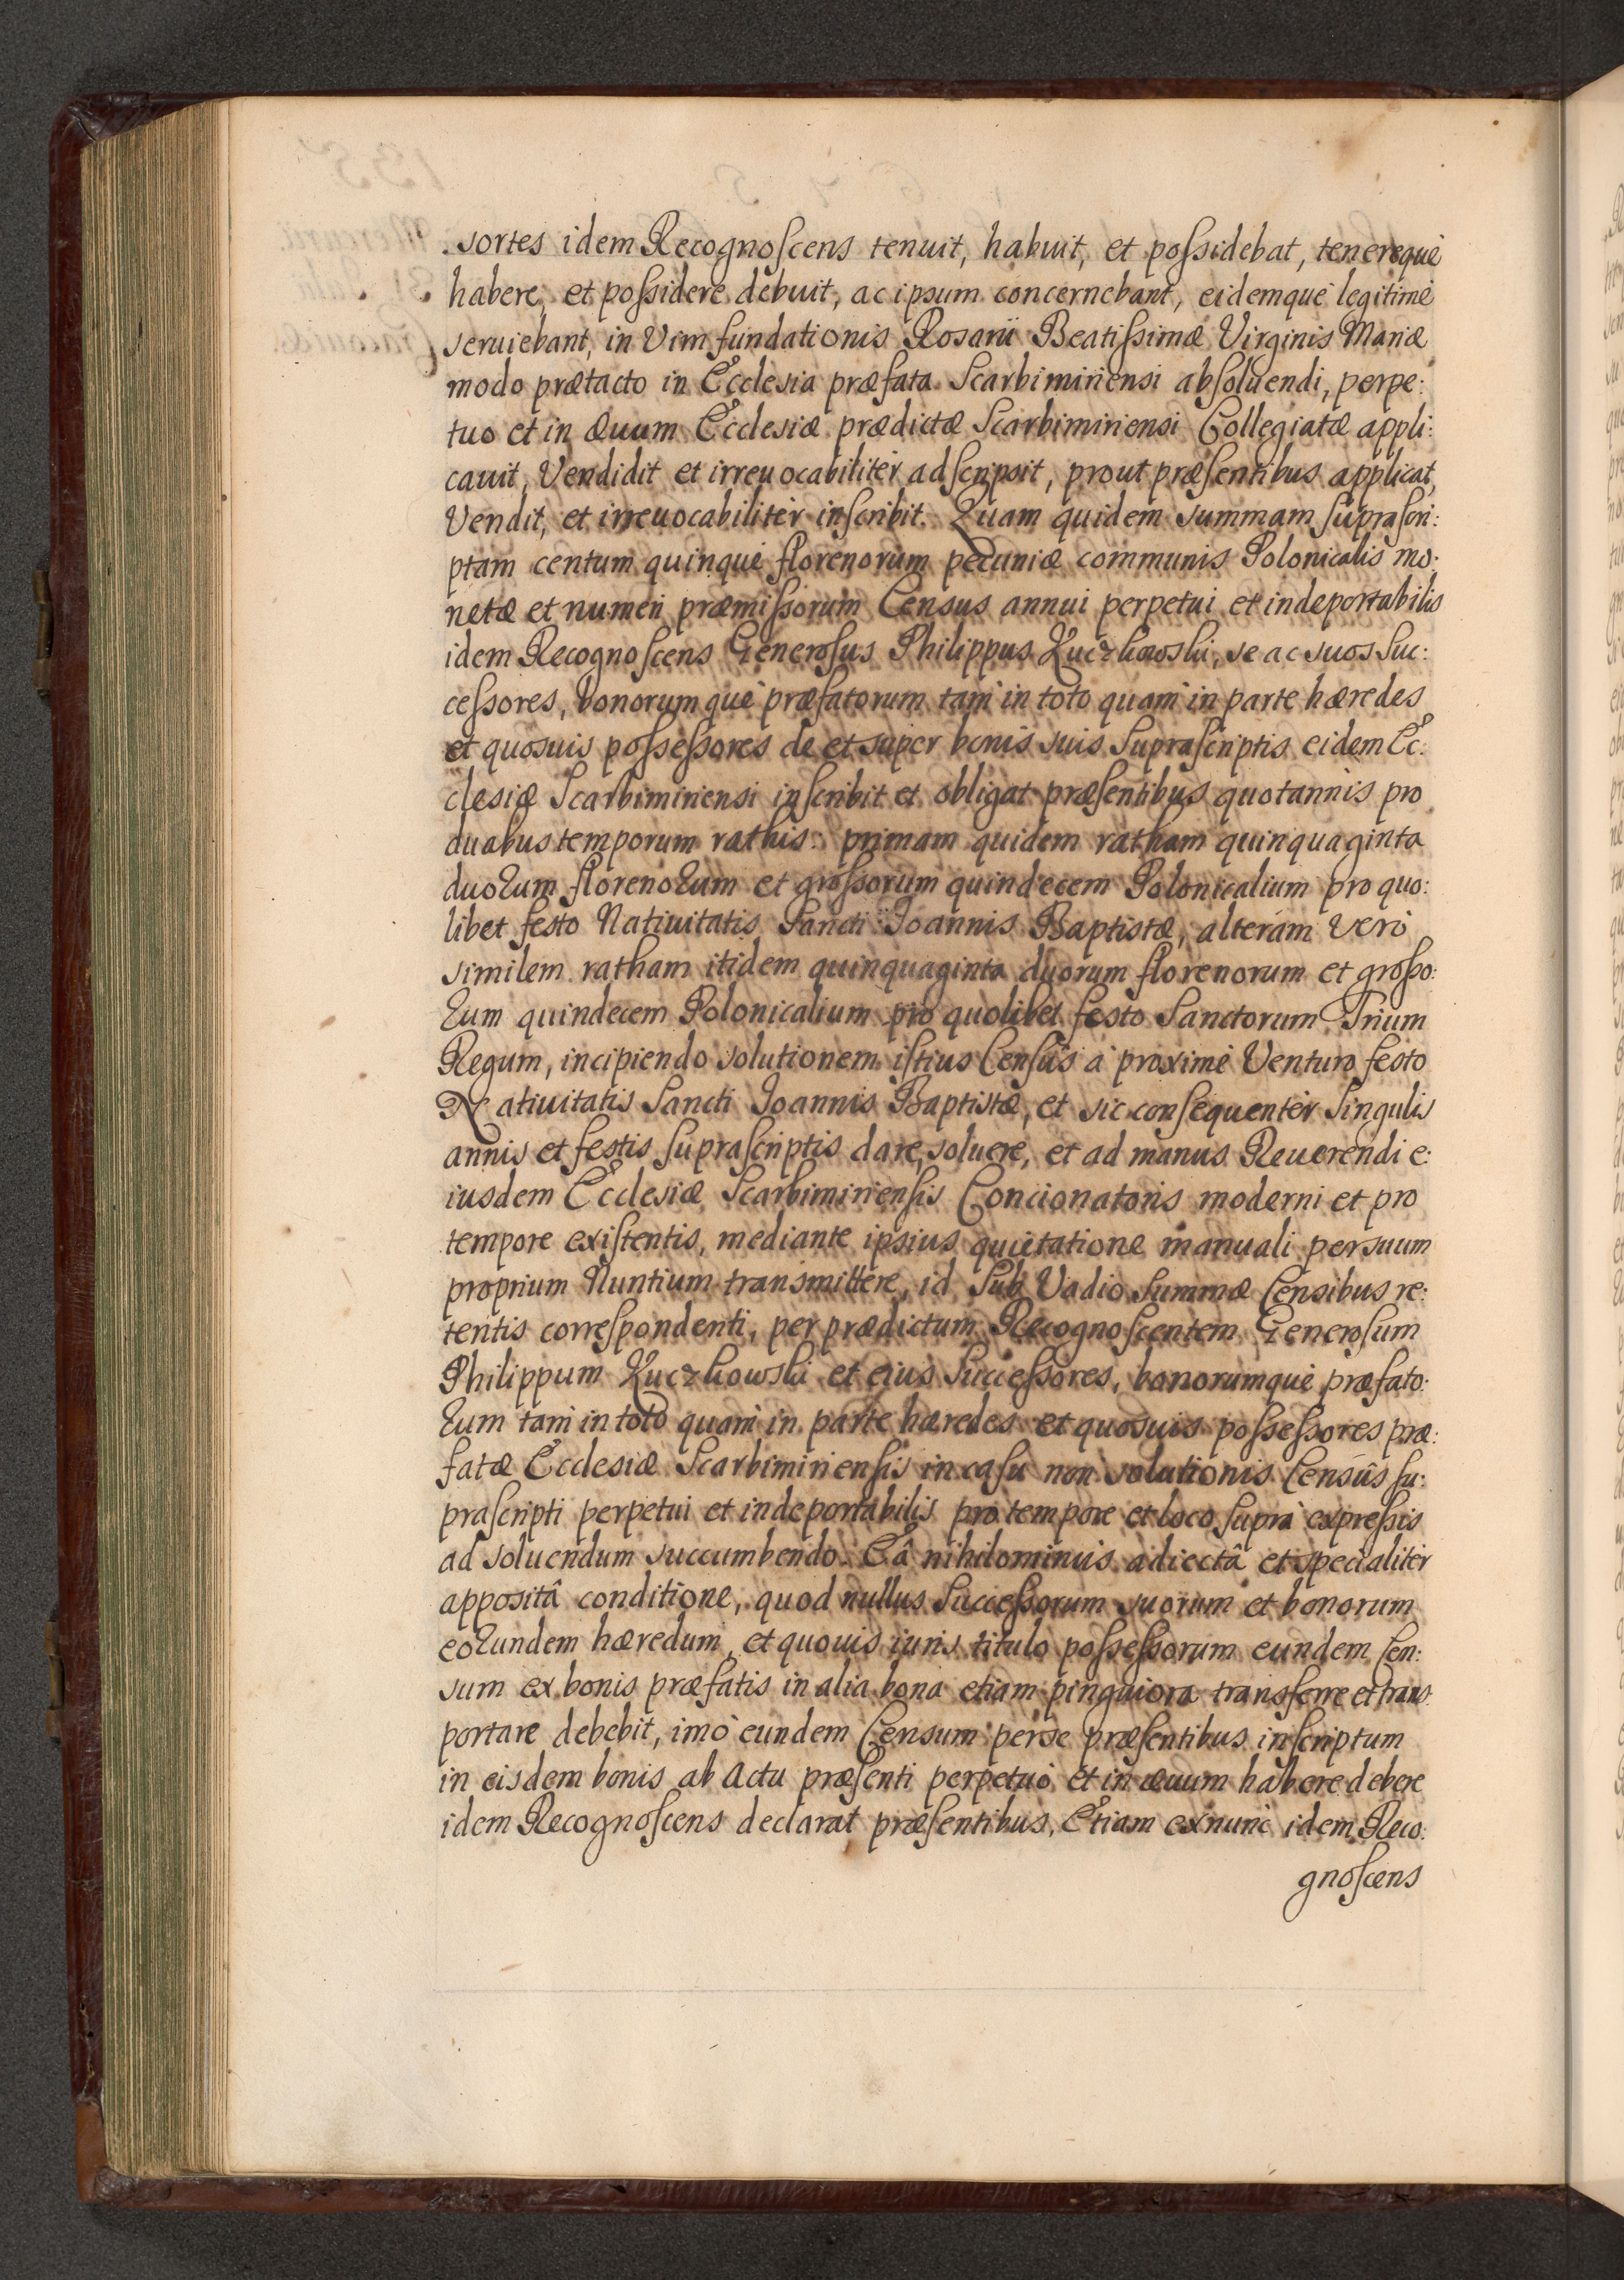 sortes idem Recognoscens tenuit, habuit, et possidebat, tenerequè
habere, et possidere debuit, ac ipsum concernebant, eidemquè legitimè
seruiebant, in Vim fundationis Rosarii Beatissimæ Virginis Mariæ
modo prætacto in Ecclesia præfata Scarbimiriensi absoluendi, perpe:
tuo et in æuum Ecclesiæ prædictæ Scarbimiriensi Collegiatæ appli:
cauit, Vendidit et irreuocabilitèr adscripsit, prout præsentibus applicat,
Vendit, et irreuocabilitèr inscribit. Quam quidem summam suprascri:
ptam centum quinquè florenorum pecuniæ communis Polonicalis mo:
netæ et numeri præmissorum Census annui perpetui et indeportabilis
idem Recognoscens Generosus Philippus Kuczkowski, se ac suos suc:
cessores, bonorumquè præfatorum tam in toto quam in parte hæredes
et quosuis possessores de et super bonis suis suprascriptis eidem Ec:
clesiæ Scarbimiriensi inscribit et obligat præsentibus quotannis pro
duabus temporum rathis: primam quidem ratham quinquaginta
duorum florenorum et grossorum quindecem Polonicalium pro quo:
libet festo Natiuitatis Sancti Joannis Baptistæ, alteram verò
similem ratham itidem quinquaginta duorum florenorum et grosso:
rum quindecem Polonicalium pro quolibet festo Sanctorum Trium
Regum, incipiendo solutionem istius Censûs à proximè Venturo festo
Natiuitatis Sancti Joannis Baptistæ, et sic consequentèr singulis
annis et festis suprascriptis dare, soluere, et ad manus Reuerendi e:
iusdem Ecclesiæ Scarbimiriensis Concionatoris moderni et pro
tempore existentis, mediante ipsius quietatione manuali per suum
proprium Nuntium transmittere, id sub Vadio summæ Censibus re:
tentis correspondenti, per prædictum Recognoscentem Generosum
Philippum Kuczkowski et eius successores, bonorumquè præfato:
rum tam in toto quam in parte hæredes et quosuis possessores præ:
fatæ Ecclesiæ Scarbimiriensis in casu non solutionis Censûs su:
prascripti perpetui et indeportabilis pro tempore et loco suprà expressis
ad soluendum succumbendo. Eâ nihilominùs adiectâ et specialitèr
appositâ conditione, quod nullus successorum suorum et bonorum
eorundem hæredum, et quouis iuris titulo possessorum eundem Cen:
sum ex bonis præfatis in alia bona etiam pinguiora transferre et trans:
portare debebit, imò eundem Censum per se præsentibus inscriptum
in eisdem bonis ab actu præsenti perpetuò et in æuum habere debere
idem Recognoscens declarat præsentibus. Etiam ex nunc idem Reco:
gnoscens